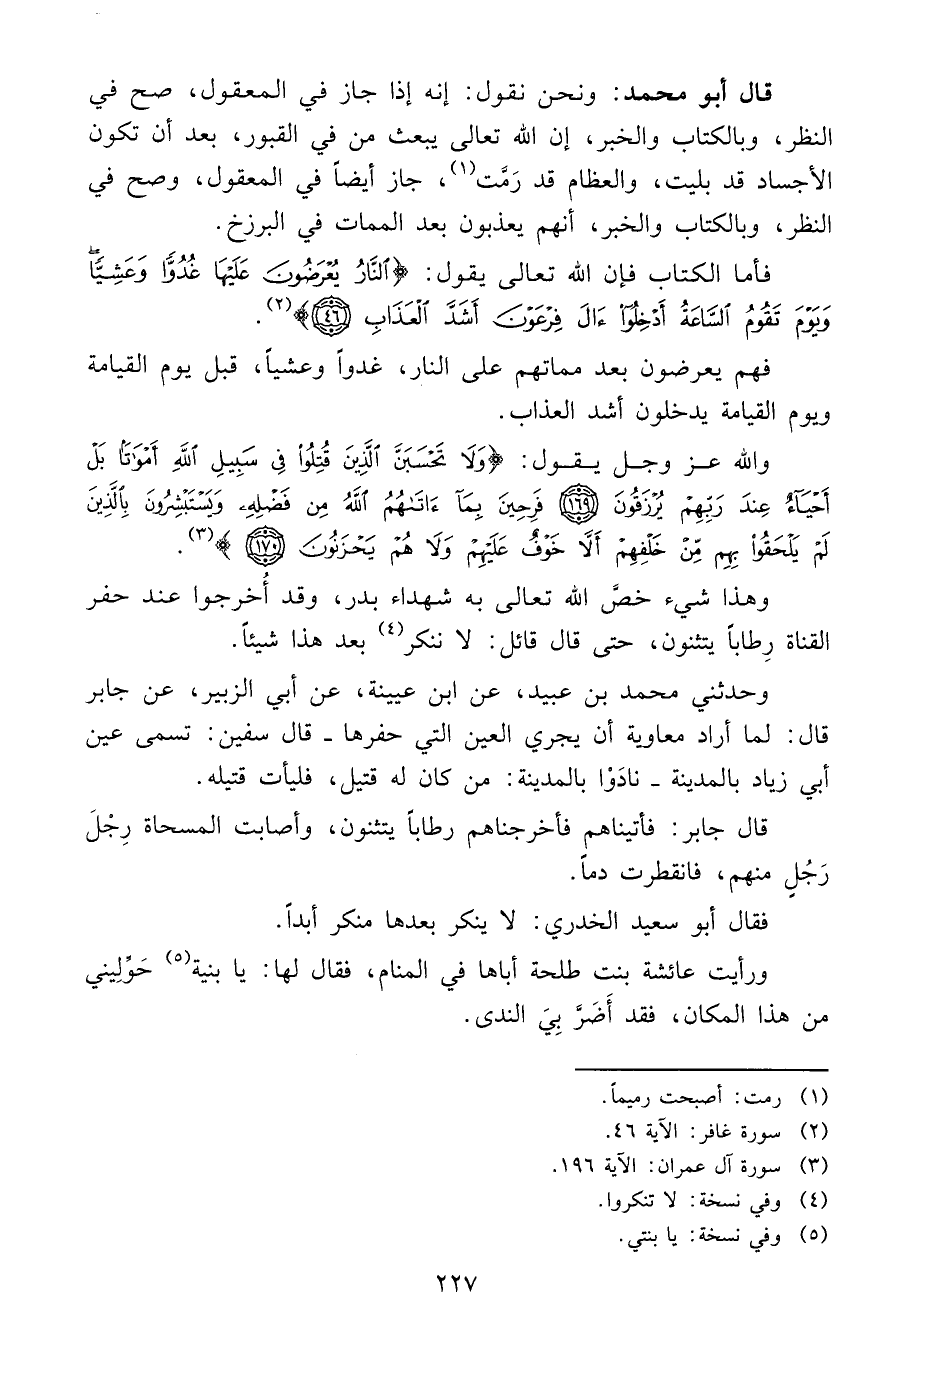 قال أبو محمد: ونحن نقول: إنه إذا جاز في المعقول، صح في
النظر، وبالكتاب والخبر، إن الله تعالى يبعث من في القبور، بعد أن تكون
الأجساد قد بليت، والعظام قد رَمَّت(١)، جاز أيضاً في المعقول، وصح في
النظر، وبالكتاب والخبر، أنهم يعذبون بعد الممات في البرزخ.
فأما الكتاب فإن الله تعالى يقول: ﴿ٱلنَّارُ يُعْرَضُونَ عَلَيْهَا غُدُوًّا وَعَشِيًّا ۖ
وَيَوْمَ تَقُومُ ٱلسَّاعَةُ أَدْخِلُوٓا۟ ءَالَ فِرْعَوْنَ أَشَدَّ ٱلْعَذَابِ ٤٦﴾(٢).
فهم يعرضون بعد مماتهم على النار، غدواً وعشياً، قبل يوم القيامة
ويوم القيامة يدخلون أشد العذاب.
والله عـز وجـل يـقـول: ﴿وَلَا تَحْسَبَنَّ ٱلَّذِينَ قُتِلُوا۟ فِى سَبِيلِ ٱللَّهِ أَمْوَٰتًۢا بَلْ
أَحْيَآءٌ عِندَ رَبِّهِمْ يُرْزَقُونَ ١٦٩ فَرِحِينَ بِمَآ ءَاتَىٰهُمُ ٱللَّهُ مِن فَضْلِهِۦ وَيَسْتَبْشِرُونَ بِٱلَّذِينَ
لَمْ يَلْحَقُوا۟ بِهِم مِّنْ خَلْفِهِمْ أَلَّا خَوْفٌ عَلَيْهِمْ وَلَا هُمْ يَحْزَنُونَ ١٧٠﴾(٣).
وهذا شيء خصَّ الله تعالى به شهداء بدر، وقد أُخرجوا عند حفر
القناة رِطاباً يتثنون، حتى قال قائل: لا ننكر(٤) بعد هذا شيئاً.
وحدثني محمد بن عبيد، عن ابن عيينة، عن أبي الزبير، عن جابر
قال: لما أراد معاوية أن يجري العين التي حفرها ـ قال سفين: تسمى عين
أبي زياد بالمدينة ـ نادَوْا بالمدينة: من كان له قتيل، فليأت قتيله.
قال جابر: فأتيناهم فأخرجناهم رطاباً يتثنون، وأصابت المسحاة رِجْلَ
رَجُلٍ منهم، فانقطرت دماً.
فقال أبو سعيد الخدري: لا ينكر بعدها منكر أبداً.
ورأيت عائشة بنت طلحة أباها في المنام، فقال لها: يا بنية(٥) حَوِّلِيني
من هذا المكان، فقد أَضَرَّ بِيَ الندى.
(١) رمت: أصبحت رميماً.
(٢) سورة غافر: الآية ٤٦.
(٣) سورة آل عمران: الآية ١٩٦.
(٤) وفي نسخة: لا تنكروا.
(٥) وفي نسخة: يا بنتي.
٢٢٧